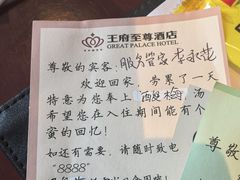 王府至尊酒店
GREAT PALACE HOTEL
尊敬的宾客:
欢迎回家,劳累了一天
特意为您奉上 酸梅 汤
希望您在入住期间能有个
蜜的回忆!
如还有需要,请随时致电
"8888"
尊